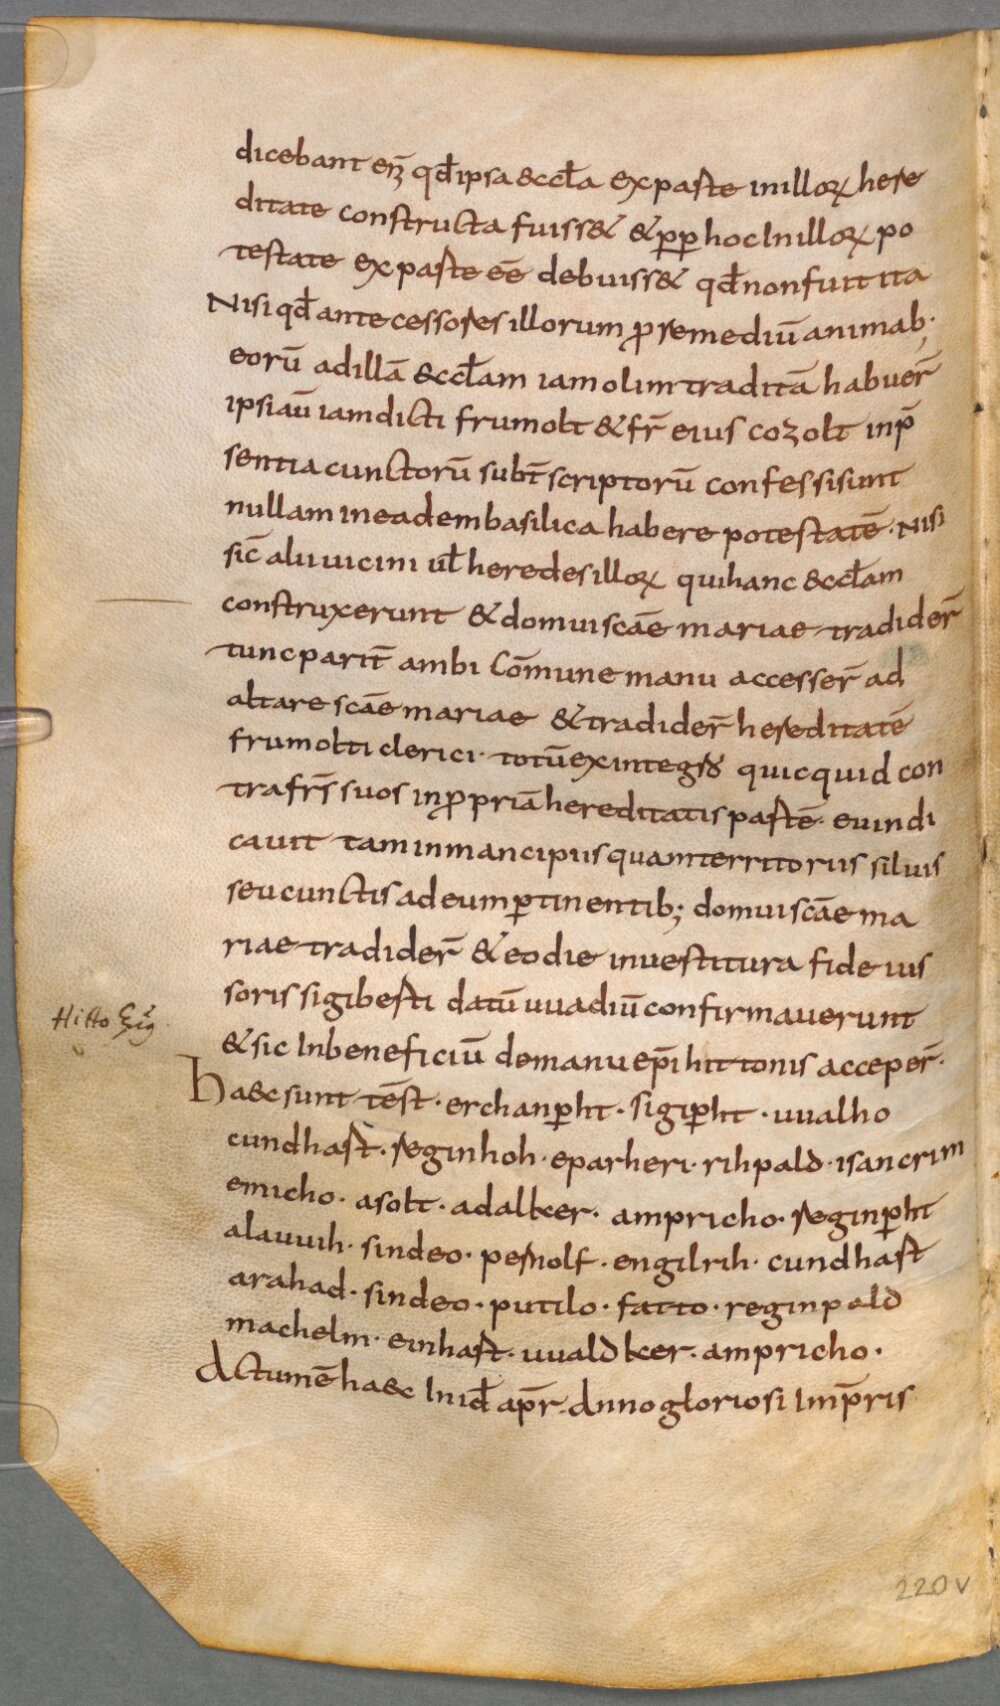 dicebant eñ qđ ipsa &ccła ex parte in illoꝝ here
ditate constructa fuiss& & ꝓp hoc In illoꝝ po
testate ex parte eē debuiss& qđ non fuit ita
Nisi qđ antecessores illorum ꝓ remediū animab;
eorū ad illā &ccłam iam olim traditā habuer̄
ipsi aū iamdicti frumolt & fr̄ eius cozolt in p̄
sentia cunctorū subt̄scriptorū confessi sunt
nullam in eadem basilica habere potestatē · Nisi
sic̄ alii uicini ul̄ heredes illoꝝ qui hanc &ccłam
construxerunt & domui scāe mariae tradider̄
tunc parit̄ ambi Cōmune manu accesser̄ ad
altare scāe mariae & tradider̄ hereditatē
frumolti clerici · totū ex integro quicquid con
tra fr̄s suos in ꝓpriā hereditatis partē · euindi
cauit tam in mancipiis quam territoriis siluis
seu cunctis ad eum ꝑtinentib; domui scāe ma
riae tradider̄ & eo die inuestitura fideius
soris sigiberti datū uuadiū confirmauerunt
Hitto
& sic In beneficiū de manu ep̄i hittonis acceper̄ ·
haec sunt tēst · erchanꝑht · sigiꝑht · uualho
cundhart · reginhoh · eparheri · rihpald · isancrim
emicho · asolt · adalker · ampricho · reginꝑht
alauuih · sindeo · pernolf · engilrih · cundhart
arahad · sindeo · putilo · fatto · reginpald
machelm · einhart · uualdker · ampricho ·
Actum ē haec In iđ ap̄r · Anno gloriosi Imp̄ris
220v